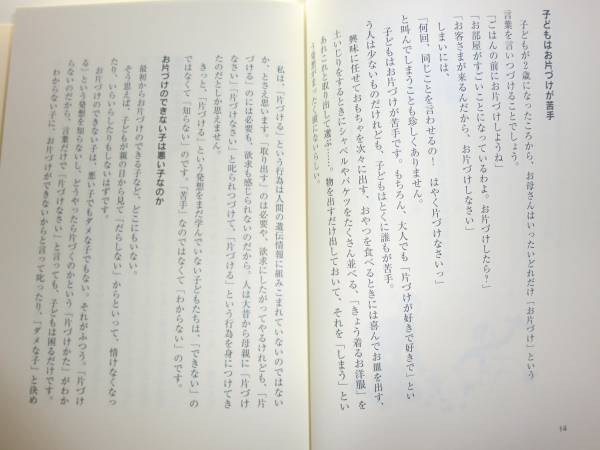 子どもはお片づけが苦手
子どもが2歳になったころから、お母さんはいったいどれだけ「お片づけ」という
言葉を言いつづけることでしょう。
「ごはんの前にお片づけしようね」
「お部屋がすごいことになっているわよ。お片づけしたら?」
「お客さまが来るんだから、お片づけしなさい」
しまいには、
「何回、同じことを言わせるの! はやく片づけなさいっ」
と叫んでしまうことも珍しくありません。
子どもはお片づけが苦手です。もちろん、大人でも「片づけが好きで好きで」とい
う人は少ないものだけれども、子どもはとくに誰もが苦手。
興味に任せておもちゃを次々に出す、おやつを食べるときには喜んでお皿を出す、
土いじりをするときにシャベルやバケツをたくさん並べる、「きょう着るお洋服」を
あれこれと取り出して選ぶ……。物を出すだけ出しておいて、それを「しまう」とい
う発想が
私は、「片づける」という行為は人間の遺伝情報に組みこまれていないのではない
か、とさえ思います。「取り出す」のは必要や、欲求にしたがってやるけれども、「片
づける」のには必要も、欲求も感じられないのだから。人は大昔から母親に「片づけ
なさい」「片づけなさい」と叱られつづけて、「片づける」という行為を身につけてき
たのだとしか思えません。
きっと、「片づける」という発想をまだ学んでいない子どもたちは、「できない」の
ではなくて「知らない」のです。「苦手」なのではなくて「わからない」のです。
お片づけのできない子は悪い子なのか
最初からお片づけのできる子など、どこにもいない。
そう思えば、子どもが親の目から見て「だらしない」からといって、情けなくなっ
たり、いらいらしたりもしないはずです。
お片づけのできない子は、悪い子でもダメな子でもない。それがふつう。「片づけ
る」という発想を知らないし、どうやったら片づくのかという「片づけかた」がわか
らないのだから、言葉だけで「片づけなさい」と言っても、子どもは困るだけです。
わからない子に、お片づけができないからと言って叱ったり、「ダメな子」と決め
14